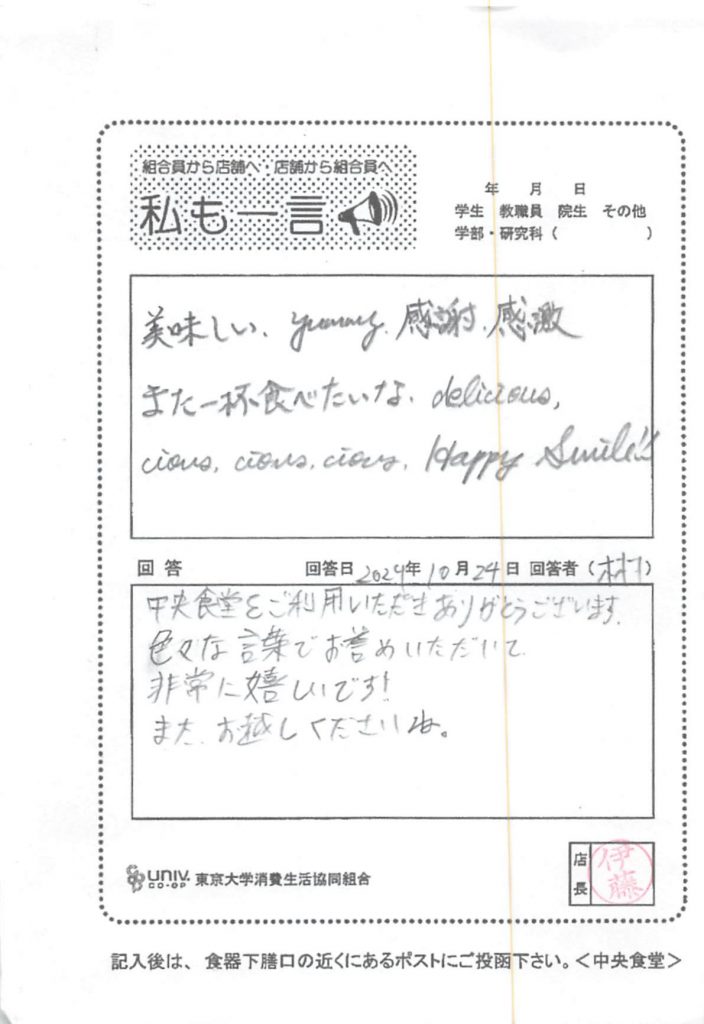 組合員から店舗へ・店舗から組合員へ
私も一言
年 月 日
学生 教職員 院生 その他
学部・研究科( )
美味しい、yummy、感謝、感激
また一杯食べたいな、delicious,
cious, cious, cious, Happy Smile!!
回答 回答日 2024年10月24日 回答者(木村)
中央食堂をご利用いただきありがとうございます。
色々な言葉でお誉めいただいて
非常に嬉しいです!
また、お越しくださいね。
UNIV. CO-OP 東京大学消費生活協同組合
店長 伊藤
記入後は、食器下膳口の近くにあるポストにご投函下さい。<中央食堂>